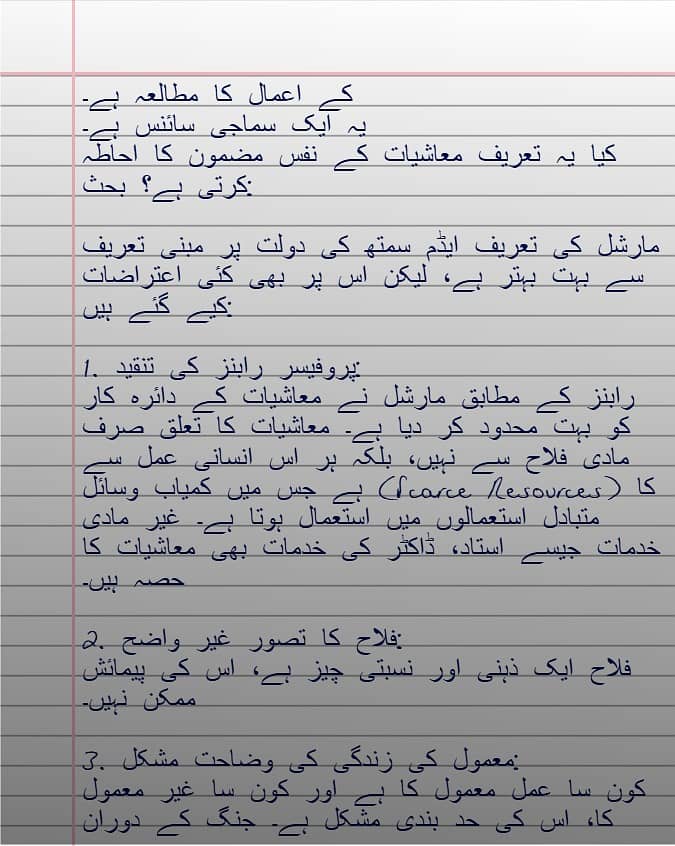 کے اعمال کا مطالعہ ہے۔
یہ ایک سماجی سائنس ہے۔
کیا یہ تعریف معاشیات کے نفس مضمون کا احاطہ
کرتی ہے؟ بحث:

مارشل کی تعریف ایڈم سمتھ کی دولت پر مبنی تعریف
سے بہت بہتر ہے، لیکن اس پر بھی کئی اعتراضات
کیے گئے ہیں:

1. پروفیسر رابنز کی تنقید:
رابنز کے مطابق مارشل نے معاشیات کے دائرہ کار
کو بہت محدود کر دیا ہے۔ معاشیات کا تعلق صرف
مادی فلاح سے نہیں، بلکہ ہر اس انسانی عمل سے
ہے جس میں کمیاب وسائل (Scarce Resources) کا
متبادل استعمالوں میں استعمال ہوتا ہے۔ غیر مادی
خدمات جیسے استاد، ڈاکٹر کی خدمات بھی معاشیات کا
حصہ ہیں۔

2. فلاح کا تصور غیر واضح:
فلاح ایک ذہنی اور نسبتی چیز ہے، اس کی پیمائش
ممکن نہیں۔

3. معمول کی زندگی کی وضاحت مشکل:
کون سا عمل معمول کا ہے اور کون سا غیر معمول
کا، اس کی حد بندی مشکل ہے۔ جنگ کے دوران